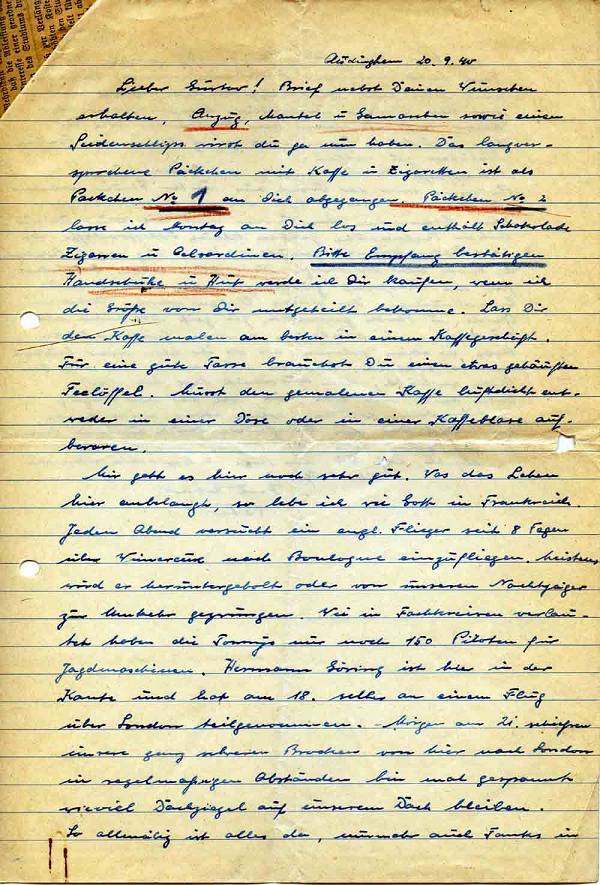 Audinghen 20.9.40
Lieber Gustav! Brief nebst Deinen Wünschen
erhalten, Anzug, Mantel u Gamaschen sowie einen
Seidenschlips wirst du ja nun haben. Das langver-
sprochene Päckchen mit Kaffe u Zigaretten ist als
Päckchen No 1 an Dich abgegangen. Päckchen No 2
lasse ich Montag an Dich los und enthält Schokolade
Zigarren u Oelsardinen. Bitte Empfang bestätigen
Handschuhe u Hut werde ich Dir kaufen, wenn ich
die Größe von Dir mitgeteilt bekomme. Lass Dir
den Kaffe malen am besten in einem Kaffegeschäft.
Für eine gute Tasse brauchst Du einen etwas gehäuften
Teelöffel. Musst den gemalenen Kaffe luftdicht ent-
weder in einer Dose oder in einer Kaffeblase auf-
bewaren.
Mir geht es hier noch sehr gut. Was das Leben
hier anbelangt, so lebe ich wie Gott in Frankreich.
Jeden Abend versucht ein engl. Flieger seit 8 Tagen
über Wimereux nach Boulogne einzufliegen. Meistens
wird er heruntergeholt oder von unseren Nachtjäger
zur Umkehr gezwungen. Wie in Fachkreisen verlau-
tet haben die Tommys nur noch 150 Piloten für
Jagdmaschinen. Hermann Göring ist hier in der
Kante und hat am 18. selbst an einem Flug
über London teilgenommen. - Morgen am 21. schiessen
unsere ganz schweren Brocken von hier nach London
in regelmäßigen Abständen bin mal gespannt
wieviel Dachziegel auf unserem Dach bleiben.
So allmälig ist alles da, nunmehr auch Tanks in